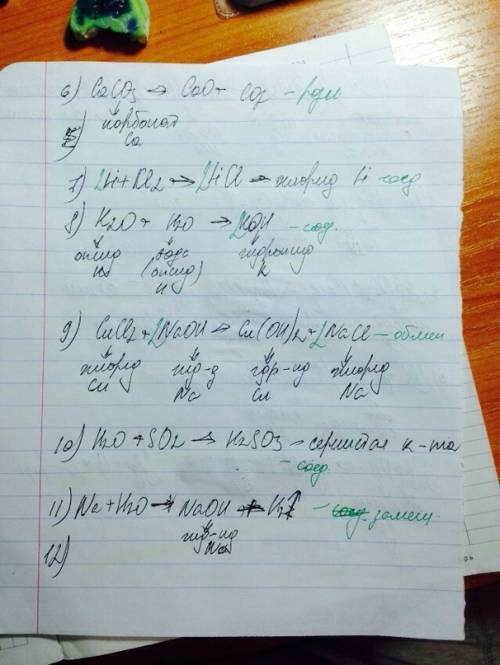 6) CaCO3 → CaO + CO2 - разл
карбонат
Ca
7) 2Li + Cl2 → 2LiCl → хлорид Li соед
8) K2O + H2O → 2KOH - соед.
оксид вода гидроксид
(оксид) K
H
9) CuCl2 + 2NaOH → Cu(OH)2 + 2NaCl - обмен
хлорид гидр-д гдр-ид хлорид
Cu Na Cu Na
10) H2O + SO2 → H2SO3 - сернистая к-та
- соед
11) Na + H2O → NaOH + H2↑ - замещ.
гидр-ид
Na
12)